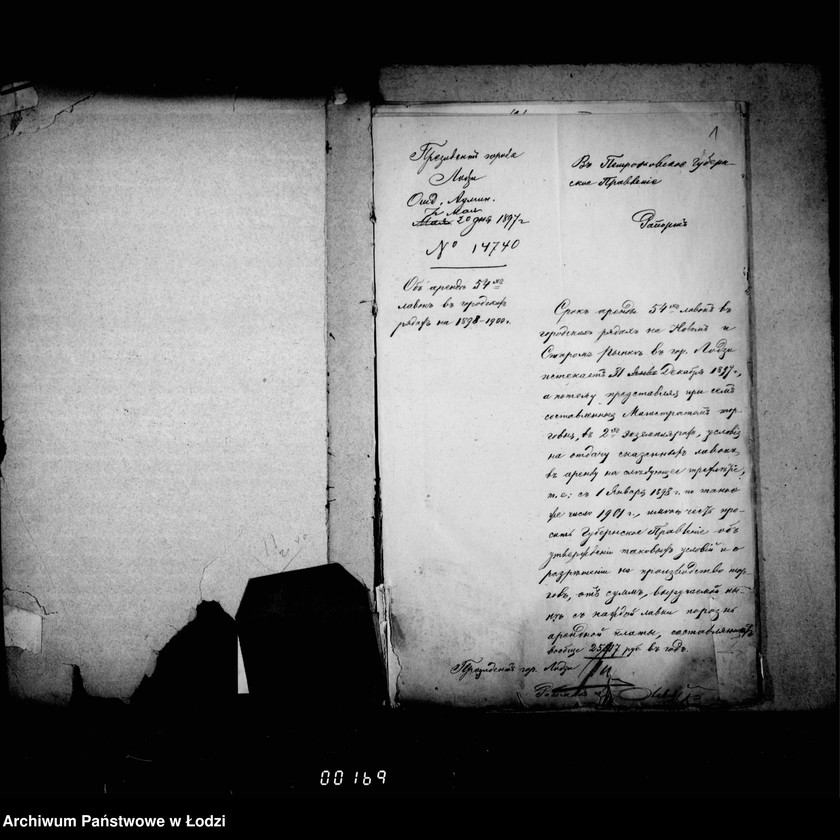 1
Президентъ города
Лодзи
Отд. Админ.
Мая
20 дня 1897 г
№ 14740
Объ аренде 54хъ
лавокъ въ городскихъ
рядахъ на 1898-1900 г.
Въ Петроковское Губерн-
ское Правленіе
Рапортъ
Срокъ аренды 54хъ лавокъ въ
городскихъ рядахъ на Новомъ и
Старомъ Рынкахъ въ гор. Лодзи
истекаетъ 31 Декабря 1897 г.,
а потому представляя при семъ
составленныя Магистратомъ тор-
говыя, въ 2хъ экземплярахъ, условія
на отдачу сказанныхъ лавокъ
въ аренду на слѣдующее трехлѣтіе,
т.е. съ 1 Января 1898 г. по такое
же число 1901 г., имѣю честь про-
сить Губернское Правленіе объ
утвержденіи таковыхъ условій и о
разрѣшеніи на производство тор-
говъ, отъ суммъ, выручаемой ны-
нѣ съ каждой лавки порознь
арендной платы, составляющей
вообще руб. въ годъ.
Президентъ гор. Лодзи
00169
Archiwum Państwowe w Łodzi